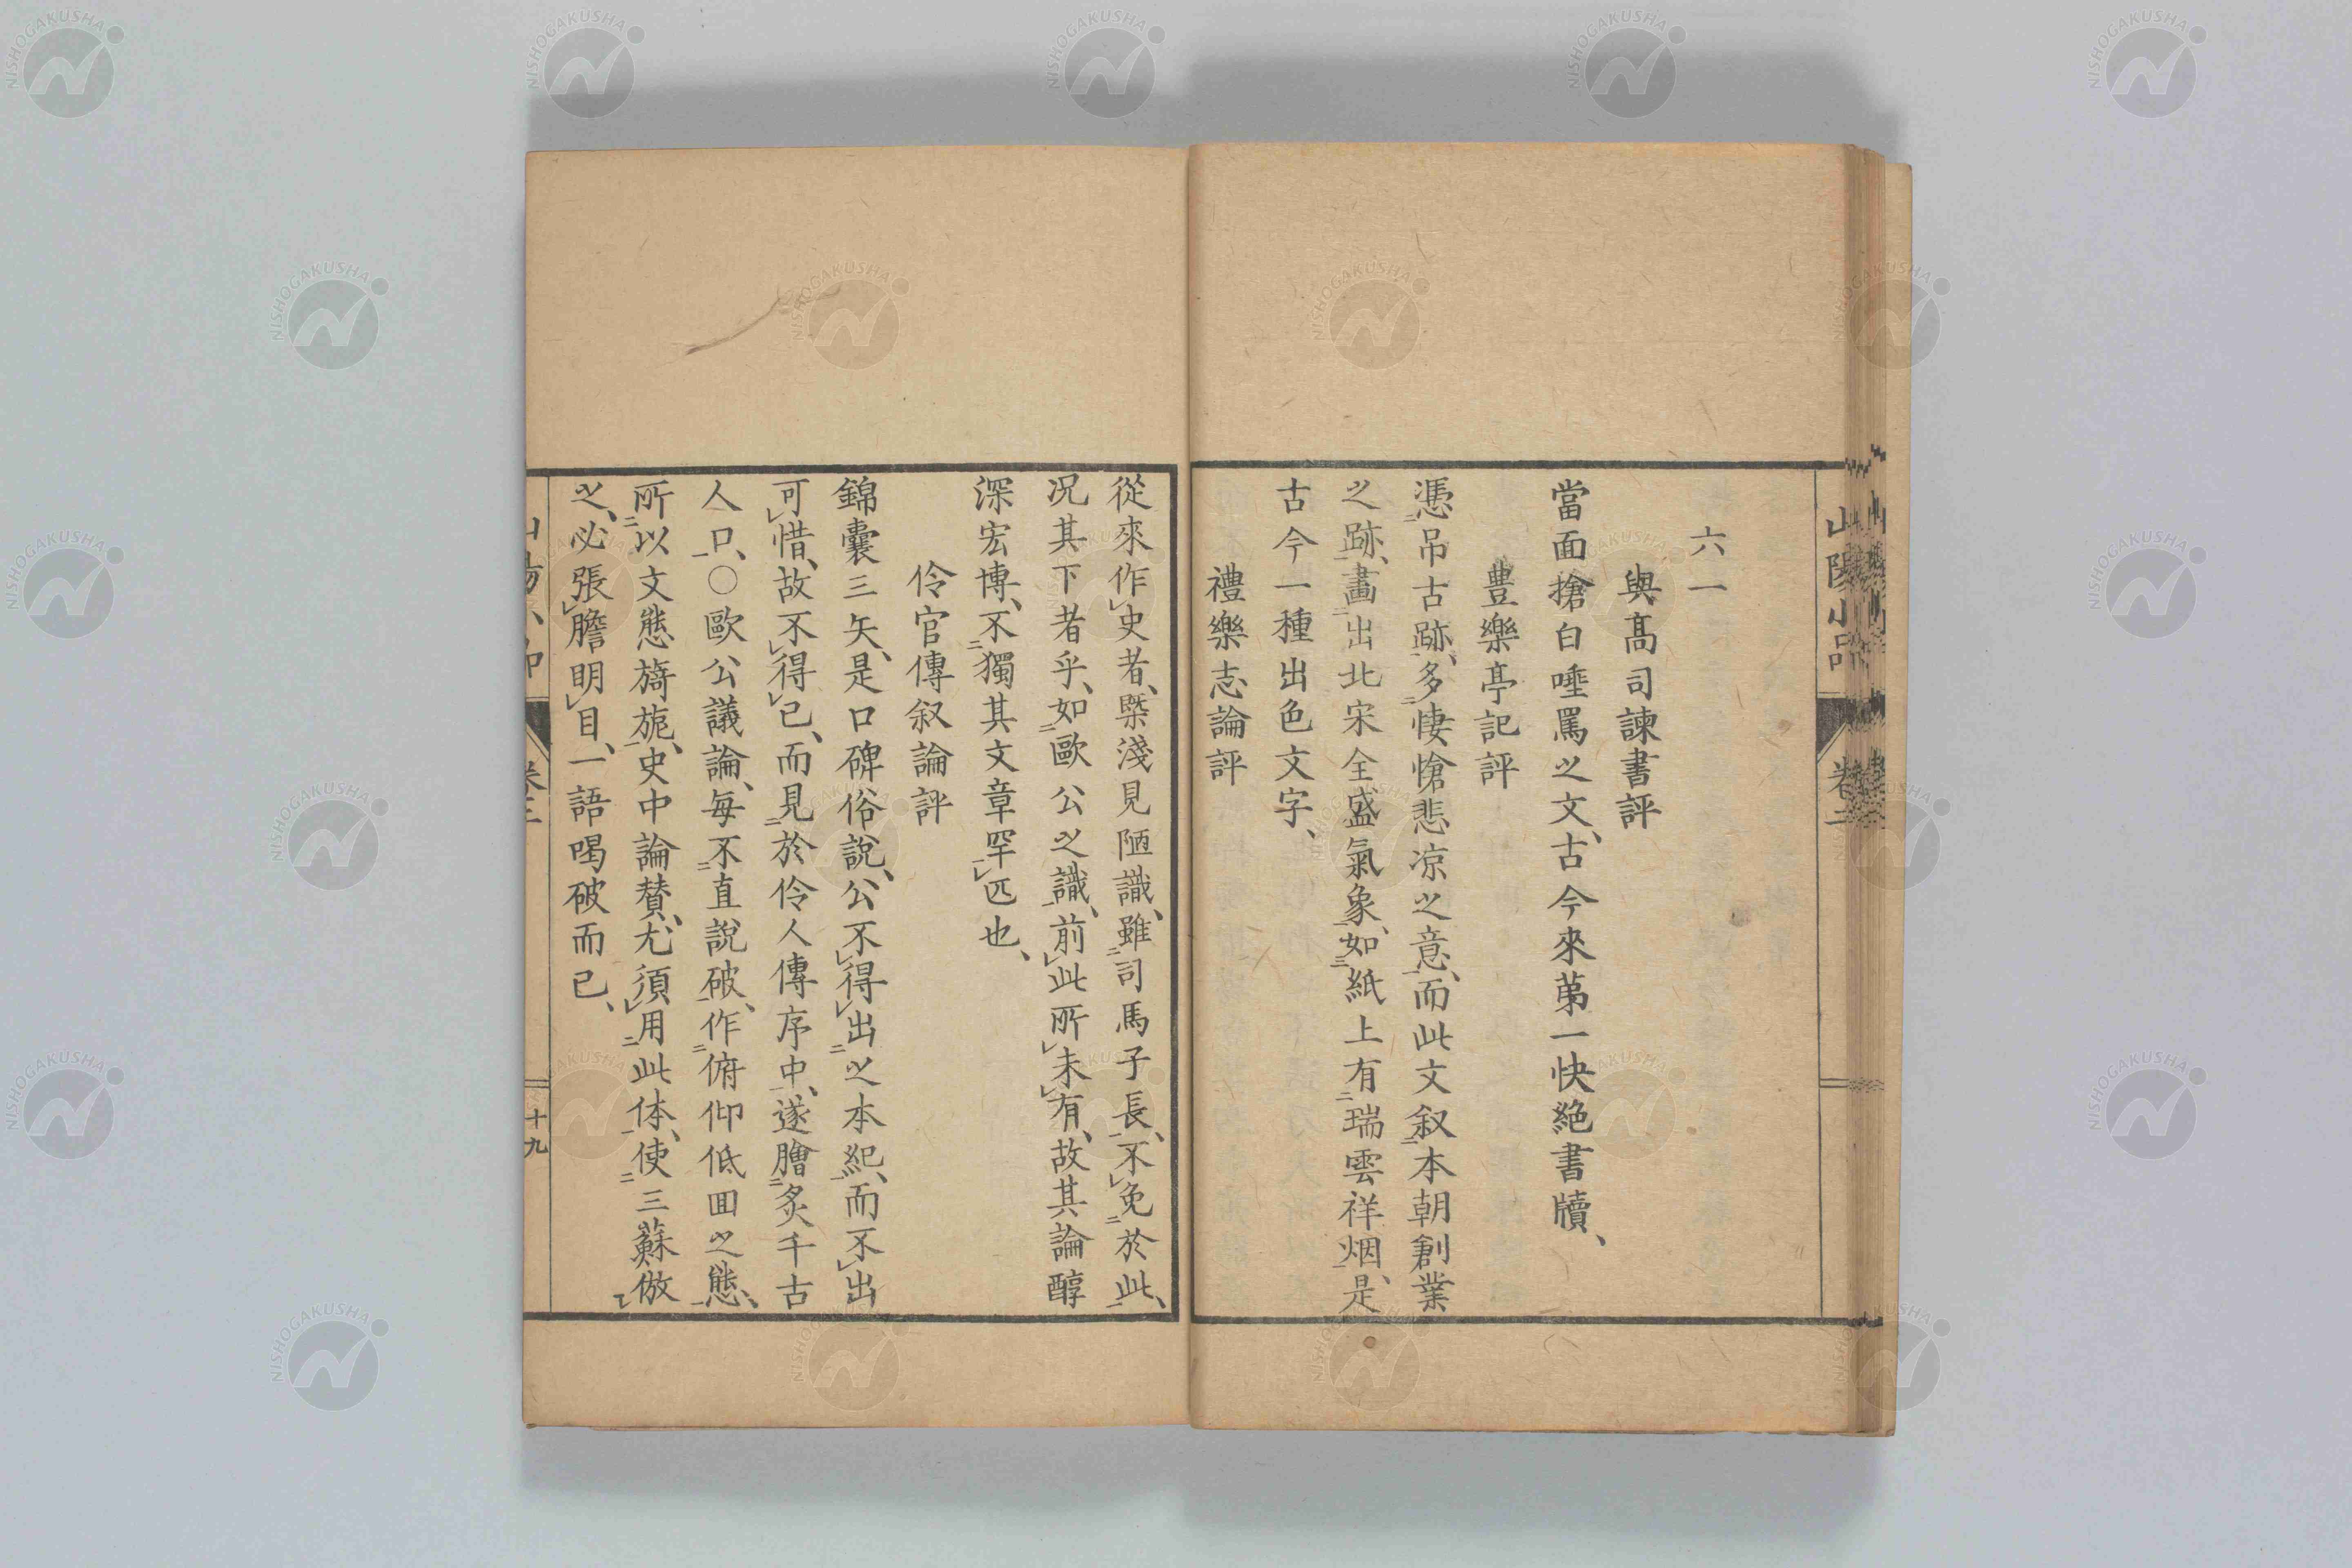 山陽小品
卷二
六一
與髙司諫書評
當面搶白唾罵之文、古今來苐一快絶書牘、
豊樂亭記評
憑吊古跡、多悽愴悲凉之意、而此文叙本朝創業
之跡、畫出北宋全盛氣象、如紙上有瑞雲祥烟、是
古今一種出色文字、
禮樂志論評
從來作史者、槩淺見陋識、雖司馬子長、不免於此、
况其下者乎、如歐公之識、前此所未有、故其論醇
深宏博、不獨其文章罕匹也、
伶官傳叙論評
錦囊三矢、是口碑俗說、公不得出之本紀、而不出
可惜、故不得已、而見於伶人傳序中、遂膾炙千古
人口、〇歐公議論、每不直說破、作俯仰低囬之態、
所以文態旖旎、史中論賛、尤須用此体、使三蘇倣
之、必張膽明目、一語喝破而已、
十九
NISHOGAKUSHA